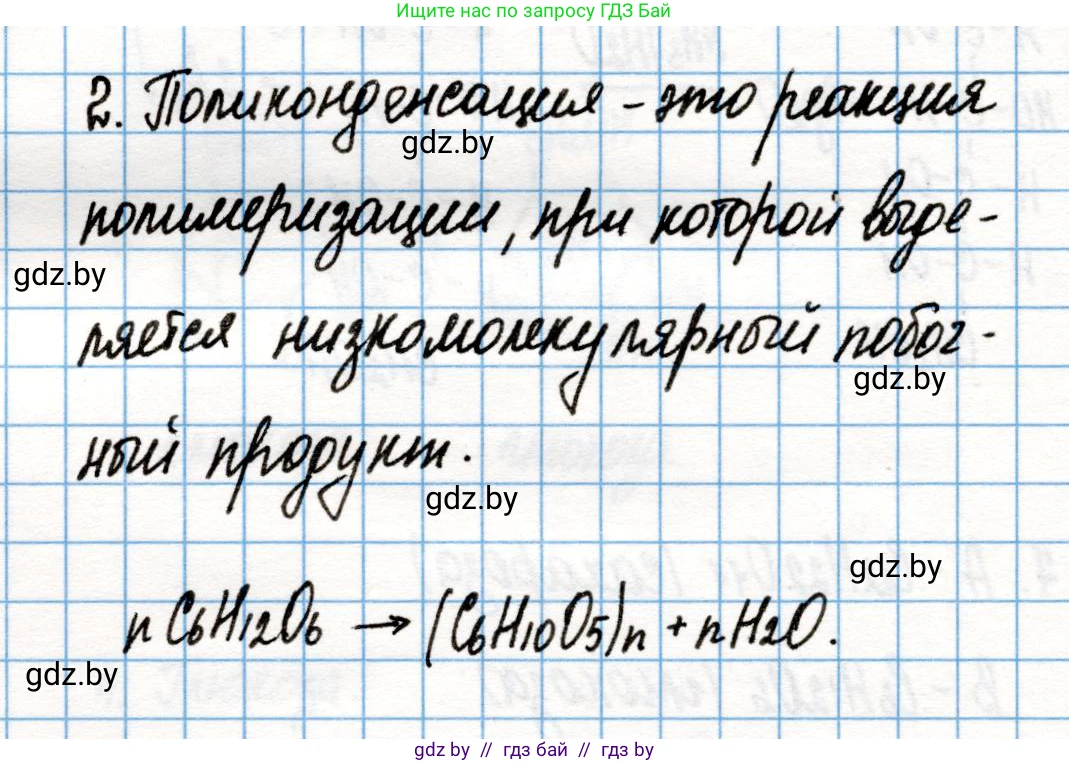 Ищите нас по запросу ГДЗ Бай
2. Поликонденсация – это реакция
gdz.by
полимеризации, при которой выде-
gdz.by
ляется низкомолекулярный побоч-
gdz.by
ный продукт.
gdz.by
gdz.by
n C6H12O6 → (C6H10O5)n + nH2O.
gdz.by
gdz by // гдз бай // гдз by